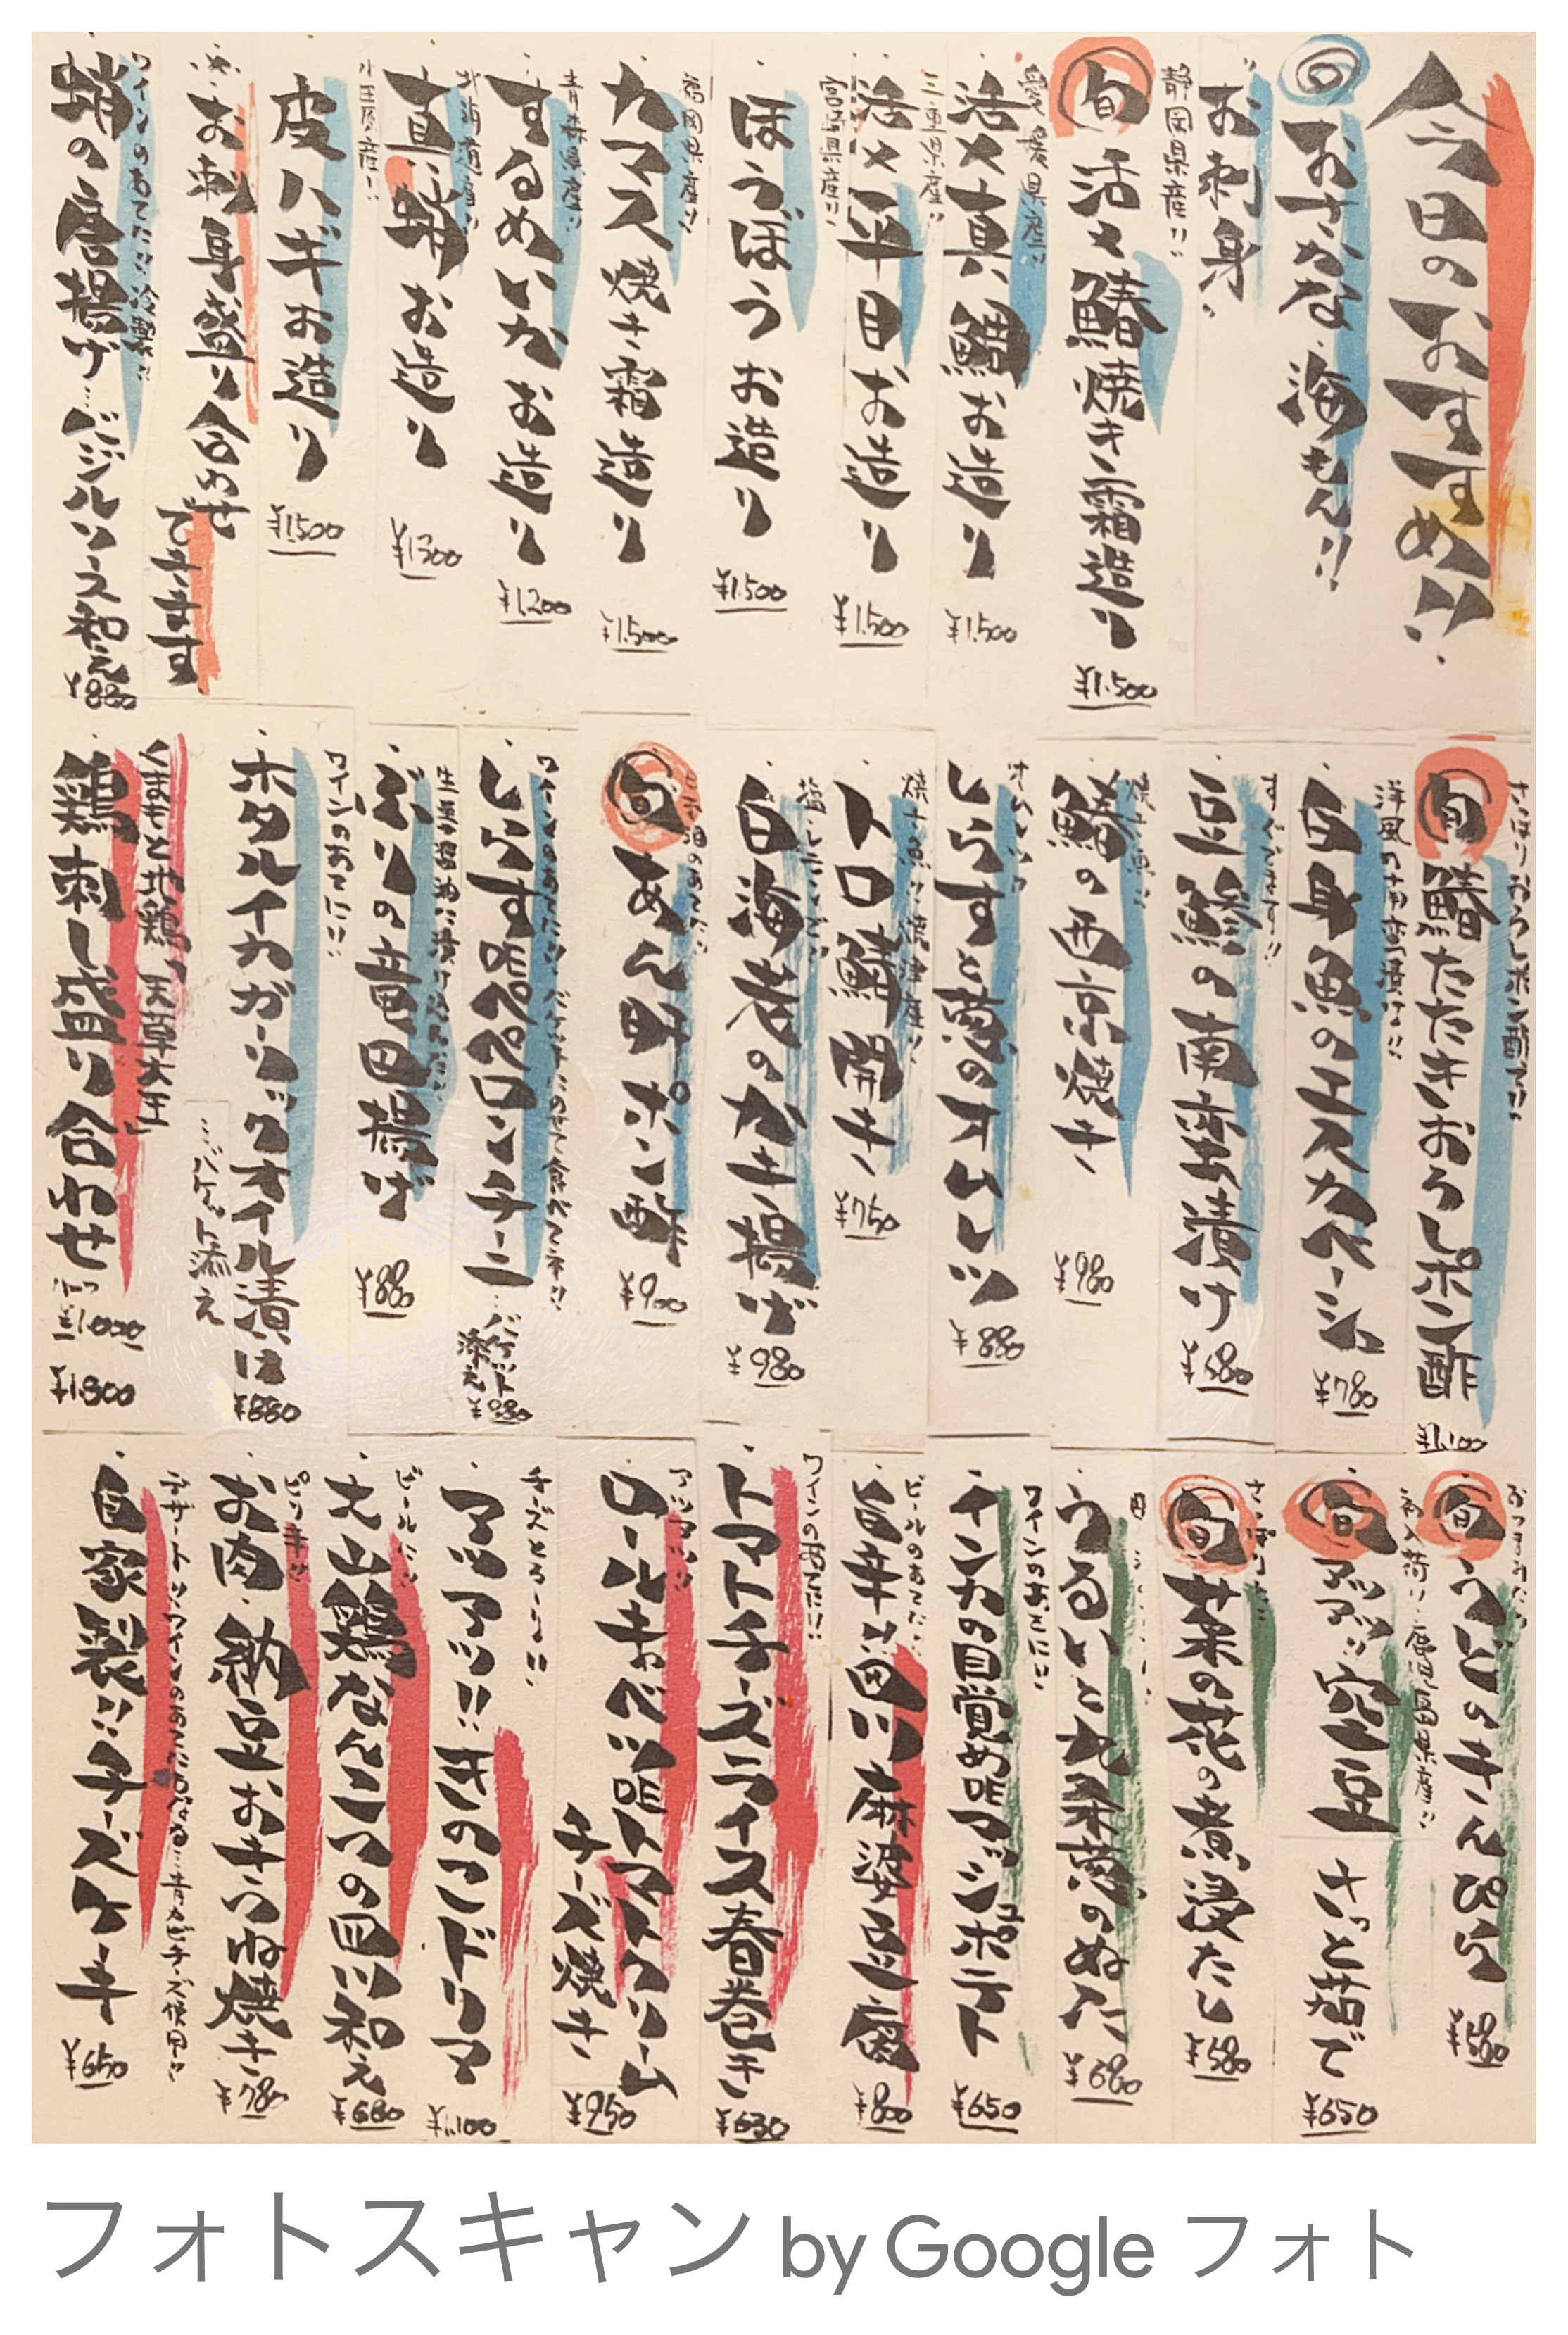 今日のおすすめ!!
◎おさかな・海もん!!
お刺身・
静岡県産!!
旬 活〆鰆焼き霜造り ¥1,500
愛媛県産!!
活〆真鯛お造り ¥1,500
三重県産!!
活〆平目お造り ¥1,500
宮崎県産!!
ほうぼうお造り ¥1,500
福岡県産!!
カマス焼き霜造り ¥1,500
青森県産!!
するめいかお造り ¥1,200
北海道産!!
真蛸お造り ¥1,300
皮ハギお造り ¥1,500
お刺身盛り合わせ
できます
ワインのあてに!!冷製!!
蛸の唐揚げ…バジルソース和え ¥880
旬 鰆たたきおろしポン酢 ¥1,100
洋風の南蛮漬け!!
白身魚のエスカベーシュ ¥780
豆鯵の南蛮漬け ¥680
焼き魚!!
鰆の西京焼き ¥980
しらすと葱のオムレツ ¥880
焼き魚!!沼津産!!
トロ鯖開き ¥750
白海老のかき揚げ ¥980
旬 あん肝ポン酢 ¥900
しらす的ペペロンチーニ…バケット添え
生姜醤油に漬け込んだ!!
ぶりの竜田揚げ ¥880
ワインのあてに!!
ホタルイカガーリックオイル漬け ¥880
…バケット添え
くまもと地鶏「天草大王」
鶏刺し盛り合わせ
¥1,000
¥1,800
旬 うどのきんぴら ¥580
旬 空豆 さっと茹で ¥650
旬 菜の花の煮浸たし ¥580
うるいと九条葱のぬた ¥680
ワインのあてに!!
インカの目覚め的アンチョビポテト ¥650
ビールのあてに!!
旨辛!!四川麻婆豆腐 ¥800
ワインのあてに!!
トマトチーズライス春巻き ¥630
ロールキャベツ的トマトクリーム
チーズ焼き ¥950
チーズとろ〜り!!
アツアツ!!きのこドリア ¥1,100
ビールに!!
大山鶏なんこつの四川和え ¥680
ピリ辛!!
お肉・納豆お𛀁つね焼き ¥780
デザート!!ワインのあてにもなる…青カビチーズ使用!!
自家製!!チーズケーキ ¥650
フォトスキャン by Google フォト